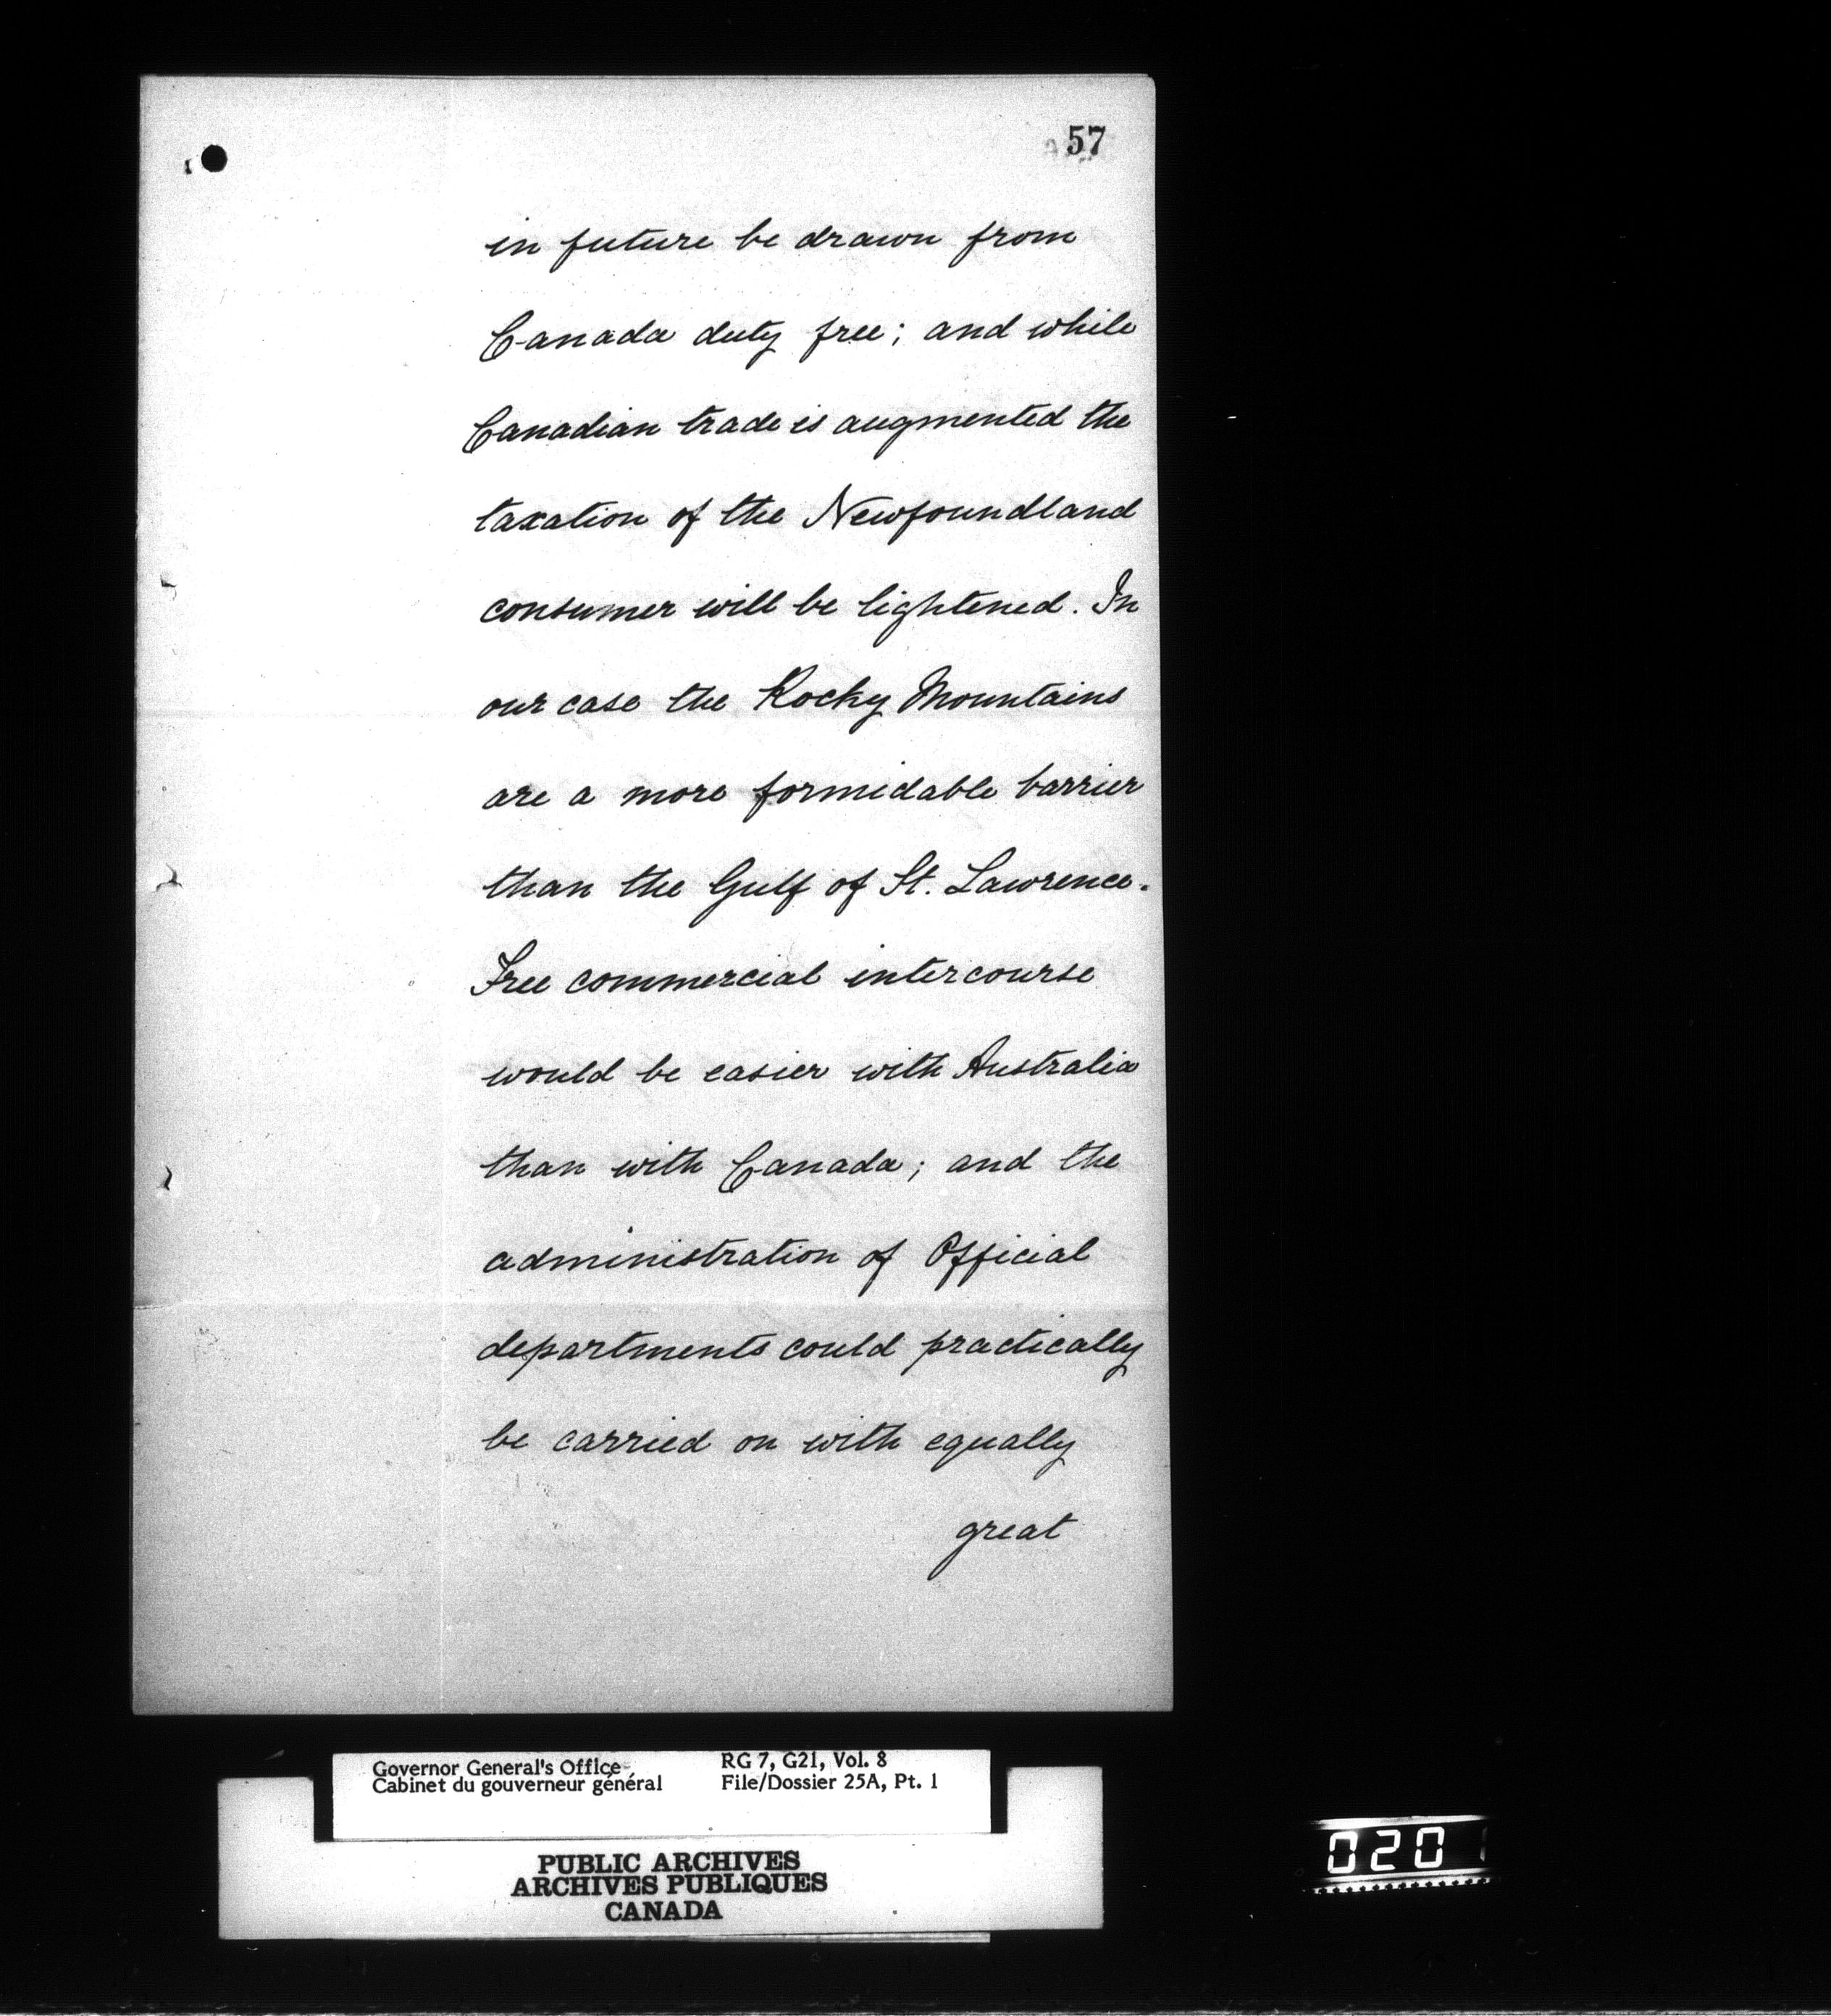 57
in future be drawn from
Canada duty free; and while
Canadian trade is augmented the
taxation of the Newfoundland
consumer will be lightened. In
our case the Rocky Mountains
are a more formidable barrier
than the Gulf of St. Lawrence.
Free commercial intercourse
would be easier with Australia
than with Canada; and the
administration of Official
departments could practically
be carried on with equally
great
Governor General's Office
Cabinet du gouverneur général
RG 7, G21, Vol. 8
File/Dossier 25A, Pt. 1
PUBLIC ARCHIVES
ARCHIVES PUBLIQUES
CANADA
020